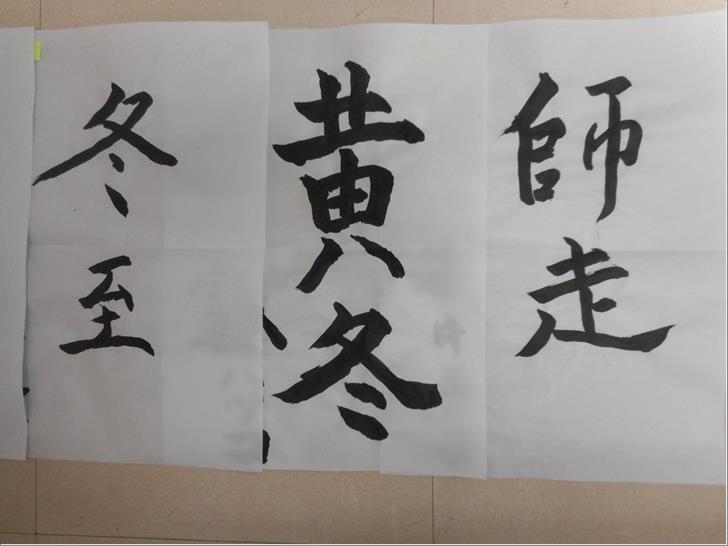 師走
黄冬
冬至